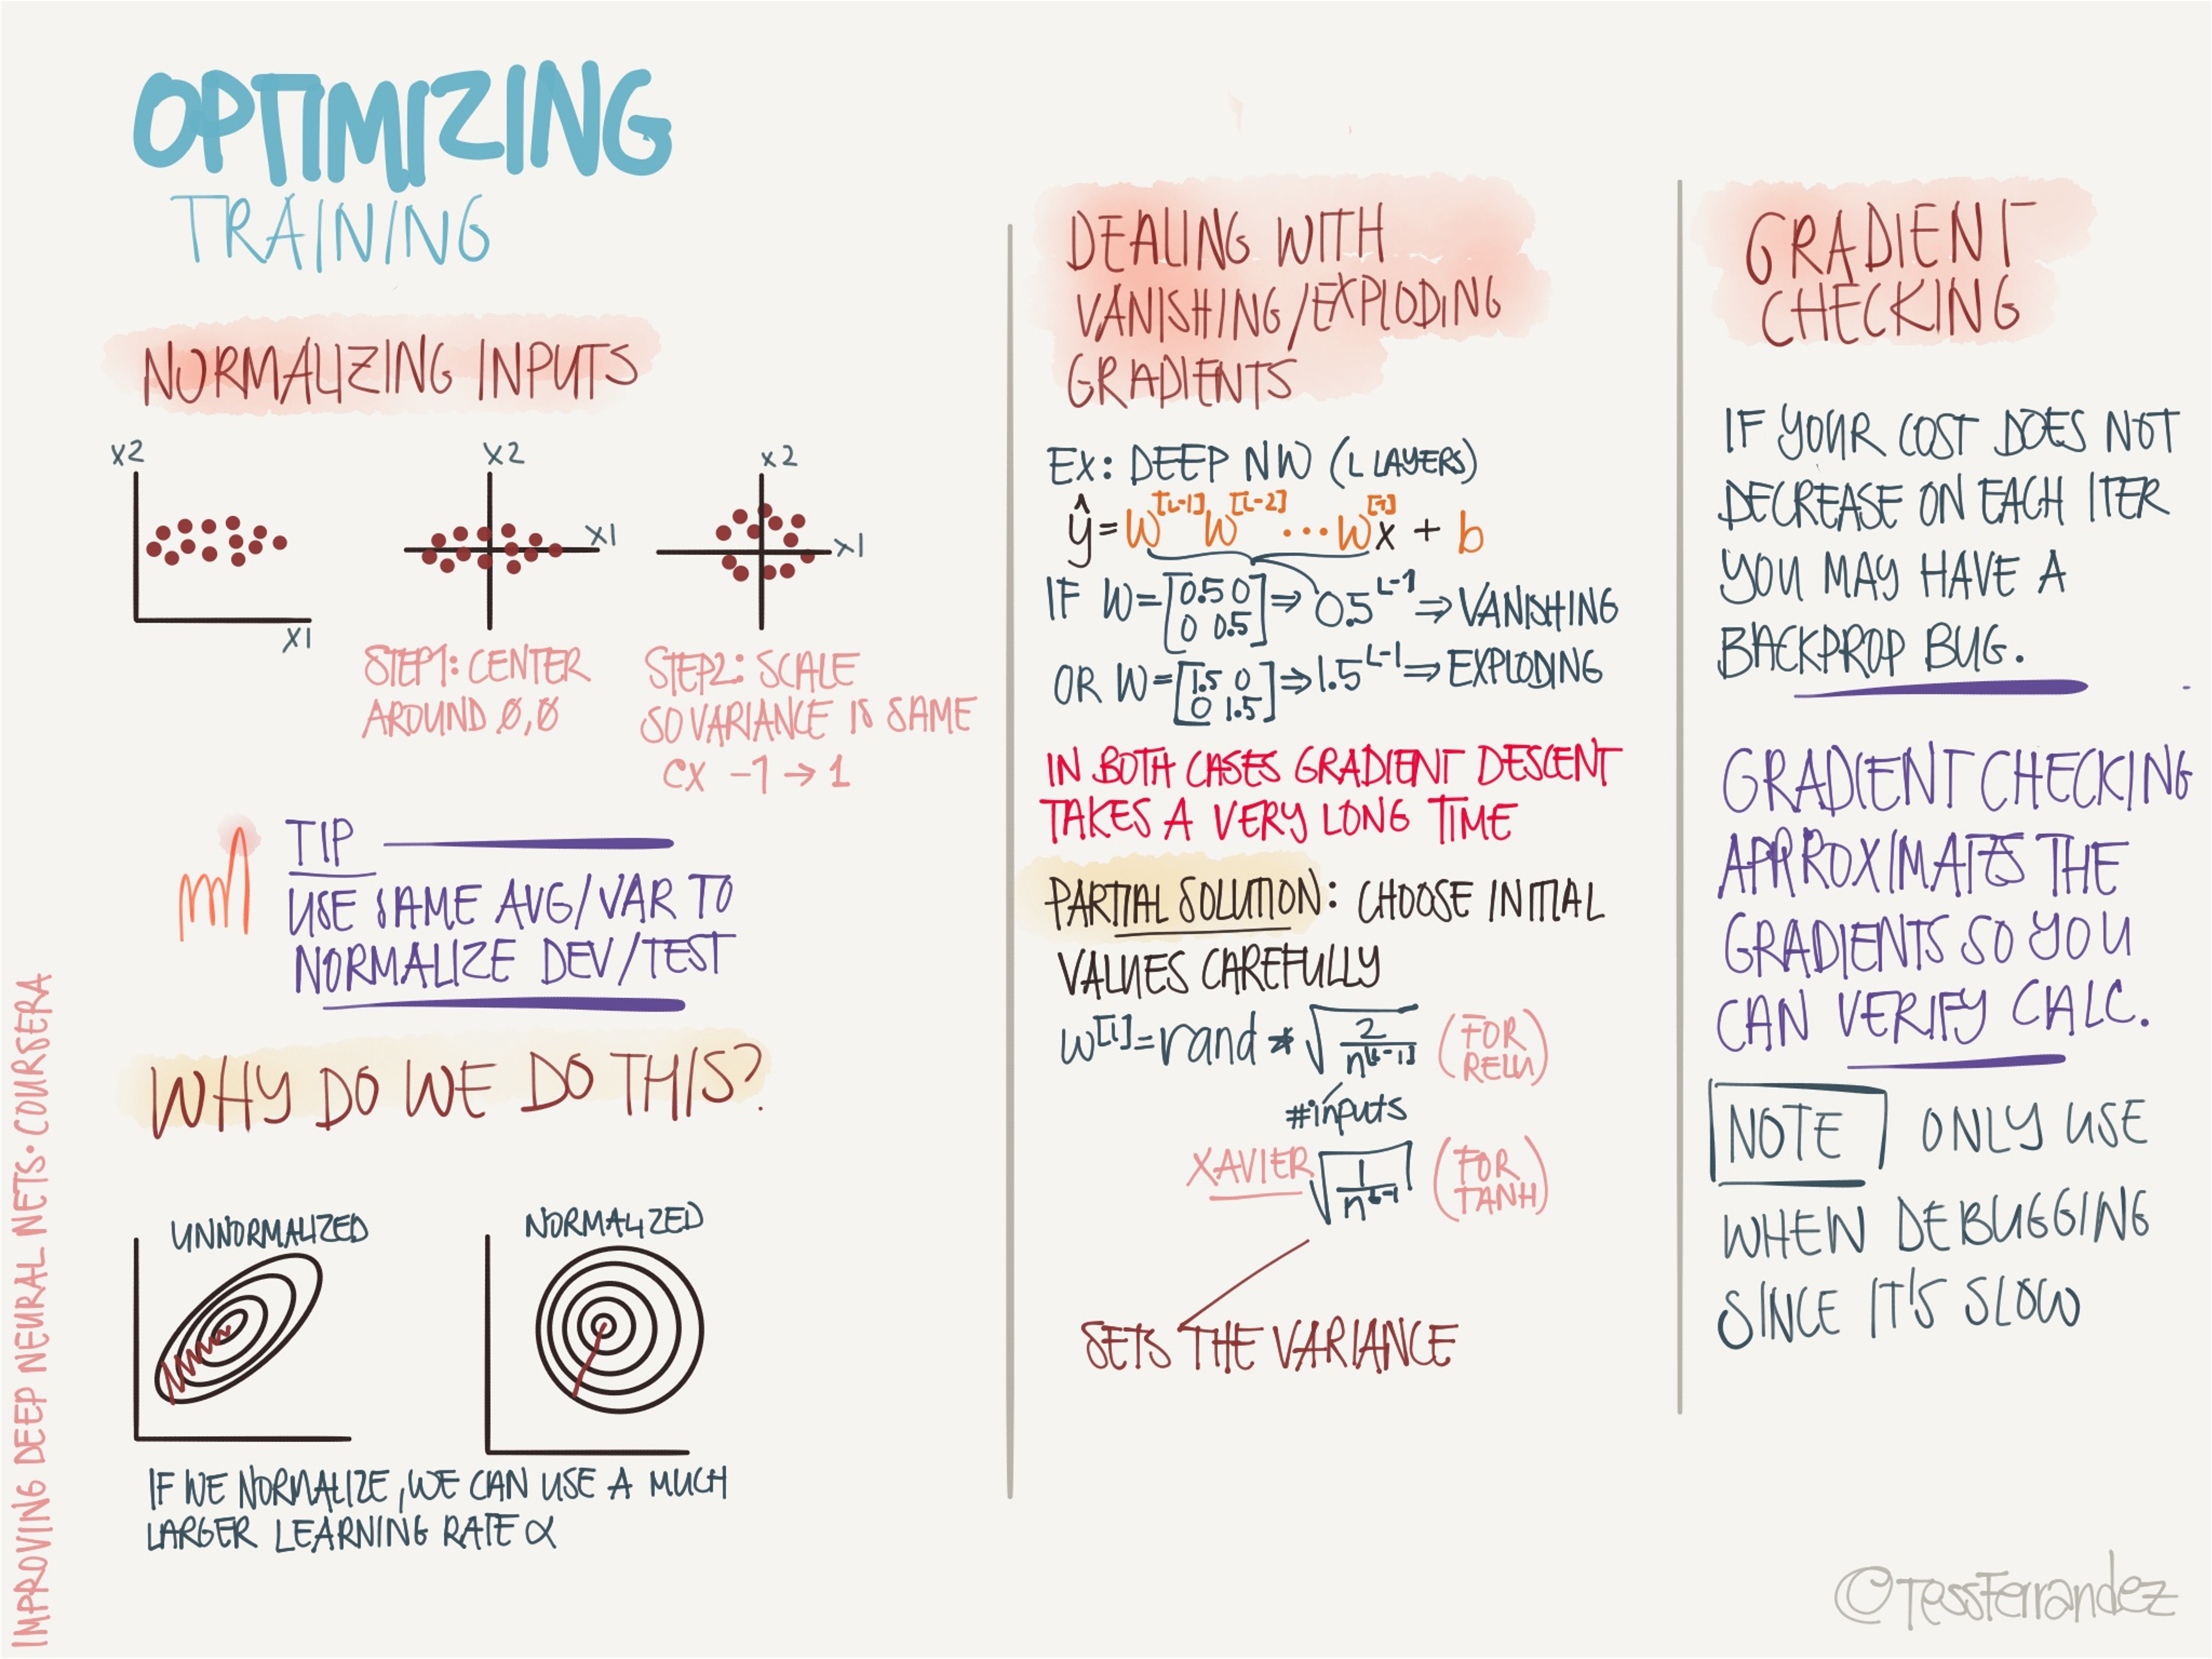 OPTIMIZING
TRAINING
NORMALIZING INPUTS
X2
X1
X2
X1
STEP1: CENTER
AROUND 0,0
X2
X1
STEP2: SCALE
SO VARIANCE IS SAME
EX -1 → 1
TIP
USE SAME AVG/VAR TO
NORMALIZE DEV/TEST
WHY DO WE DO THIS?
UNNORMALIZED
NORMALIZED
IF WE NORMALIZE, WE CAN USE A MUCH
LARGER LEARNING RATE α
DEALING WITH
VANISHING/EXPLODING
GRADIENTS
EX: DEEP NW (L LAYERS)
ŷ = W^[L-1] W^[L-2] ... W^[1] x + b
IF W = [0.5 0
0 0.5] ⇒ 0.5^L-1 ⇒ VANISHING
OR W = [1.5 0
0 1.5] ⇒ 1.5^L-1 ⇒ EXPLODING
IN BOTH CASES GRADIENT DESCENT
TAKES A VERY LONG TIME
PARTIAL SOLUTION: CHOOSE INITIAL
VALUES CAREFULLY
W^[l] = rand * √(2/n^[l-1]) (FOR RELU)
#inputs
XAVIER √(1/n^l-1) (FOR TANH)
SETS THE VARIANCE
GRADIENT
CHECKING
IF YOUR COST DOES NOT
DECREASE ON EACH ITER
YOU MAY HAVE A
BACKPROP BUG.
GRADIENT CHECKING
APPROXIMATES THE
GRADIENTS SO YOU
CAN VERIFY CALC.
NOTE ONLY USE
WHEN DEBUGGING
SINCE IT'S SLOW
IMPROVING DEEP NEURAL NETS · COURSERA
©TessFerrandez